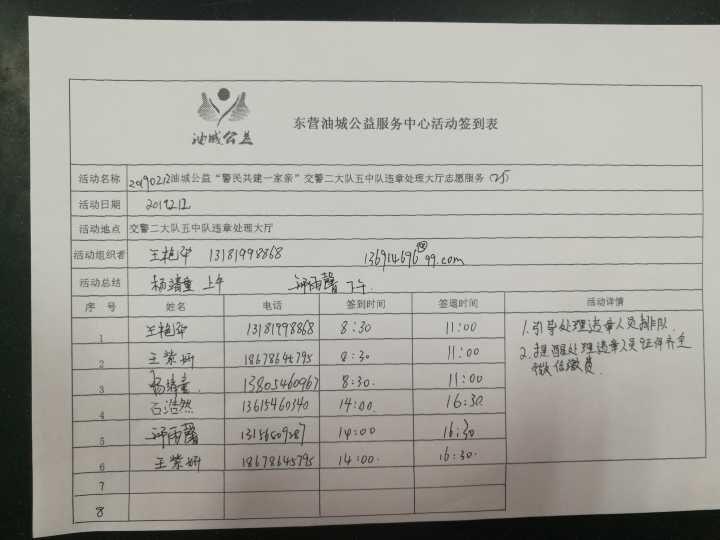 油城公益
东营油城公益服务中心活动签到表
活动名称 20190212油城公益“警民共建一家亲”交警二大队五中队违章处理大厅志愿服务(25)
活动日期 2019212
活动地点 交警二大队五中队违章处理大厅
活动组织者 王艳华 13181998868 136914696@99.com
活动总结 杨靖童 上午 雨馨 下午.
序 号 姓名 电话 签到时间 签退时间 活动详情
1 王艳华 13181998868 8:30 11:00 1.引导处理违章人员排队.
2 王紫妍 18678645795 8:30 11:00 2.提醒处理违章人员证件齐全
微信缴费.
3 杨靖童. 13805460967 8:30. 11:00
4 石浩然 13615460340 14:00. 16:30.
5 雨馨 14:00 16:30
6 王紫妍 18678645795 14:00. 16:30.
7
8